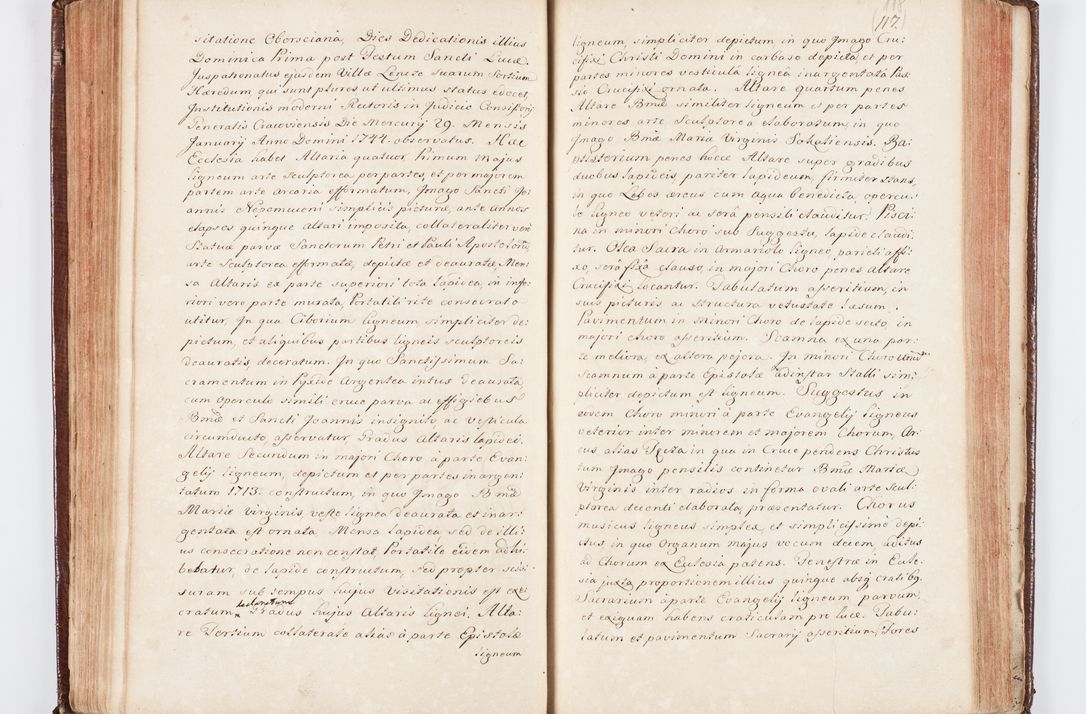 sitatione Oborsciana, Dies Dedicationis illius
Dominica Prima post Festum Sancti Lucæ.
Juspatronatus ejusdem Villæ Lencze suarum Sortium
Hæredum qui sunt plures ut ultimus status edocet,
Institutionis moderni Rectoris in Judicio Consistorij
Generalis Cracoviensis Die Mercurij 29. Mensis
Januarij Anno Domini 1744. observatus. Hæc
Ecclesia habet Altaria quatuor, Primum Majus
ligneum arte Sculptorea per partes, et per majorem
partem arte Arcaria efformatum, Imago Sancti Jo-
annis Nepomuceni simplicis picturæ, ante annos
elapsos quinque Altari imposita, collateraliter vero
Statuæ parvæ Sanctorum Petri et Pauli Apostolorum
arte Sculptorea efformatæ, depictæ et deauratæ Men-
sa Altaris ex parte superiori tota lapidea, in infe-
riori vero parte murata, Portatili rite consecrato
utitur, In qua Ciborium ligneum, simpliciter de-
pictum, et aliquibus partibus ligneis sculptoreis
deauratis, decoratum. In quo Sanctissimum Sa-
cramentum in Pyxide Argentea intus deaurata,
cum operculo simili cruce parva ac effigiebus
Bmæ et Sancti Joannis insignito ac vesticula
circumducto, asservatur Gradus Altaris lapidei.
Altare Secundum in majori Choro, à parte Evan-
gelij ligneum, depictum et per partes inargen-
tatum 1713. constructum, in quo Imago Bmæ
Mariæ virginis, veste lignea deaurata et inar-
gentata est ornata. Mensa lapidea, sed de illi-
us consecratione non constat, Portatile eidem adhi-
bebatur, de lapide constructum, sed propter scis-
suram sub tempus hujus Visitationis est exe-
cratum Gradus hujus Altaris lignei. Alta-
re Tertium collaterale alias à parte Epistolæ
ligneum
118
117
ligneum, simpliciter depictum in quo Imago Cru-
cifixi Christi Domini in carbaso depicta, et per
partes minores vesticula lignea inargentata Pas-
sio Crucifixi ornata. Altare quartum penes
Altare Bmæ similiter ligneum et per partes
minores arte Sculptorea elaboratum, in quo
Imago Bmæ Mariæ Virginis Sokaliensis. Ba-
ptisterium penes hocce Altare super gradibus
duobus lapideis pariter lapideum, firmiter stans,
in quo Lebes æreus cum aqua benedicta, opercu-
lo ligneo veteri ac serâ pensili clauditur. Pisci-
na in minori Choro sub Suggestu, lapide claudi-
tur. Olea Sacra in Armariolo ligneo, parieti affi-
xo, serâ fixâ clauso, in majori Choro penes Altare
Crucifixi locantur. Tabulatum asseritium, in
suis picturis ac structura vetustate læsum.
Pavimentum in minori Choro de lapide secto, in
majori choro asseritium. Scamna ex una par-
te meliora, ex altera pejora. In minori Choro
Scamnum à parte Epistolæ adinstar Stalli sim-
pliciter depictum est ligneum. Suggestus in
eodem Choro minori à parte Evangelij ligneus
veterior inter minorem et majorem Chorum, Ar-
cus alias Tęcza in qua in Cruce pendens Christus
tum Imago pensilis continetur Bmæ Mariæ
Virginis inter radios in forma ovali arte Scul-
ptorea decenti elaborata, præsentatur. Chorus
musicus ligneus simplex et simplicissimè depi-
ctus, in quo Organum majus vocum decem, aditus
ad Chorum ex Ecclesia patens. Fenestræ in Eccle-
sia juxta proportionem illius quinque absq cratibg.
Sacrarium à parte Evangelij ligneum parvum,
et exiguam habens craticulam pro luce. Tabu-
latum et pavimentum Sacrarij asseritium, Fores